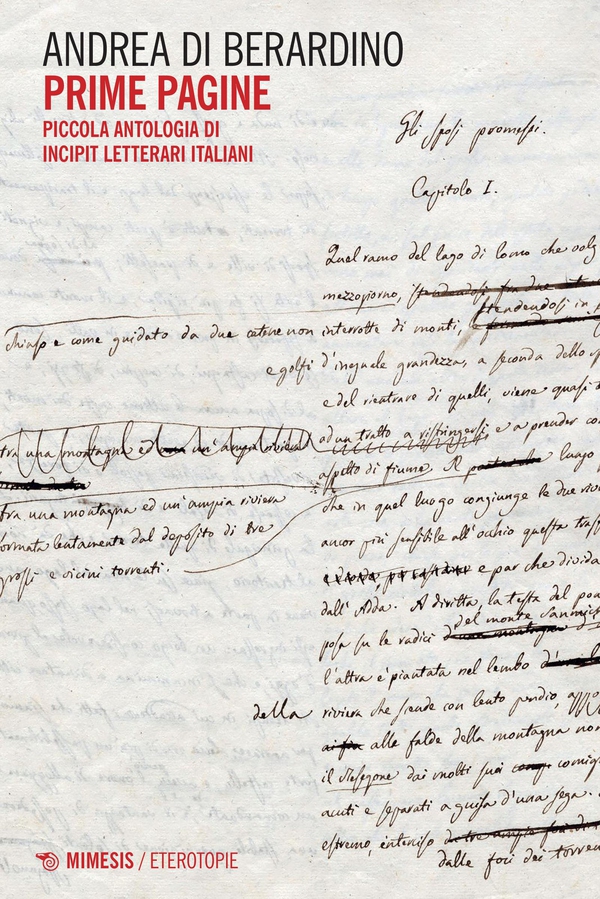 ANDREA DI BERARDINO
PRIME PAGINE
PICCOLA ANTOLOGIA DI
INCIPIT LETTERARI ITALIANI
Gli sposi promessi.
Capitolo I.
Quel ramo del lago di Como che volg
mezzogiorno,
stendendosi in
chiuso e come guidato da due catene non interrotte di monti, e
e golfi d'ineguale grandezza, a seconda dello sp
e del rientrare di quelli, viene quasi
tra una montagna ed un'ampia riviera ad un tratto a ristringersi e a prender co
aspetto di fiume. Il luogo
fra una montagna ed un'ampia riviera
formata lentamente dal deposito di tre
grossi e vicini torrenti.
che in quel luogo congiunge le due rive
ancor più sensibile all'occhio questa trasf
e par che divida
dall'Adda. A diritta, la testa del pon
del monte
posa su le radici
l'altra è piantata nel lembo
della riviera che scende con lento pendio,
alle falde della montagna non
il Resegone dai molti suoi
acuti e separati a guisa d'una sega.
estremo, interciso
dalle foci dei torren
MIMESIS / ETEROTOPIE